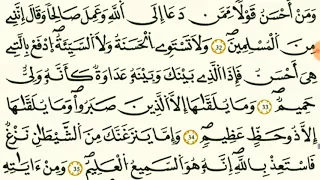 وَمَنْ أَحْسَنُ قَوْلًا مِّمَّن دَعَا إِلَى ٱللَّهِ وَعَمِلَ صَٰلِحًا وَقَالَ إِنَّنِى
مِنَ ٱلْمُسْلِمِينَ ۝٣٢ وَلَا تَسْتَوِى ٱلْحَسَنَةُ وَلَا ٱلسَّيِّئَةُ ٱدْفَعْ بِٱلَّتِى
هِىَ أَحْسَنُ فَإِذَا ٱلَّذِى بَيْنَكَ وَبَيْنَهُۥ عَدَٰوَةٌ كَأَنَّهُۥ وَلِىٌّ
حَمِيمٌ ۝٣٣ وَمَا يُلَقَّىٰهَا إِلَّا ٱلَّذِينَ صَبَرُوا۟ وَمَا يُلَقَّىٰهَا
إِلَّا ذُو حَظٍّ عَظِيمٍ ۝٣٤ وَإِمَّا يَنزَغَنَّكَ مِنَ ٱلشَّيْطَٰنِ نَزْغٌ
فَٱسْتَعِذْ بِٱللَّهِ إِنَّهُۥ هُوَ ٱلسَّمِيعُ ٱلْعَلِيمُ ۝٣٥ وَمِنْ ءَايَٰتِهِ